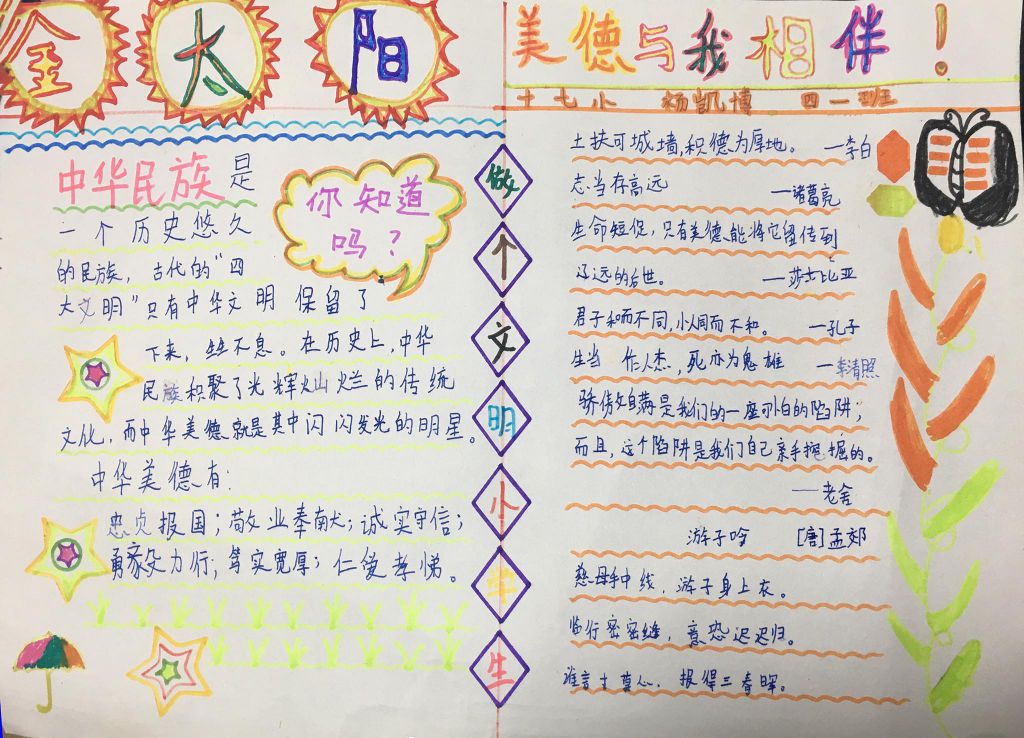 金太阳
美德与我相伴！
十七小 杨凯博 四一班
中华民族是
你知道
吗？
一个历史悠久
的民族，古代的“四
大文明”只有中华文明保留了
下来，丝不息。在历史上，中华
民族积聚了光辉灿烂的传统
文化，而中华美德就是其中闪闪发光的明星。
中华美德有：
忠贞报国；敬业奉献；诚实守信；
勇毅力行；笃实宽厚；仁爱孝悌。
做
个
文
明
小
学
生
土扶可城墙，积德为厚地。 —李白
志当存高远 —诸葛亮
生命短促，只有美德能将它留传到
辽远的后世。 —莎士比亚
君子和而不同，小人同而不和。 —孔子
生当 作人杰，死亦为鬼雄 —李清照
骄傲自满是我们的一座可怕的陷阱；
而且，这个陷阱是我们自己亲手挖掘的。
—老舍
游子吟 [唐]孟郊
慈母手中线，游子身上衣。
临行密密缝，意恐迟迟归。
谁言寸草心，报得三春晖。